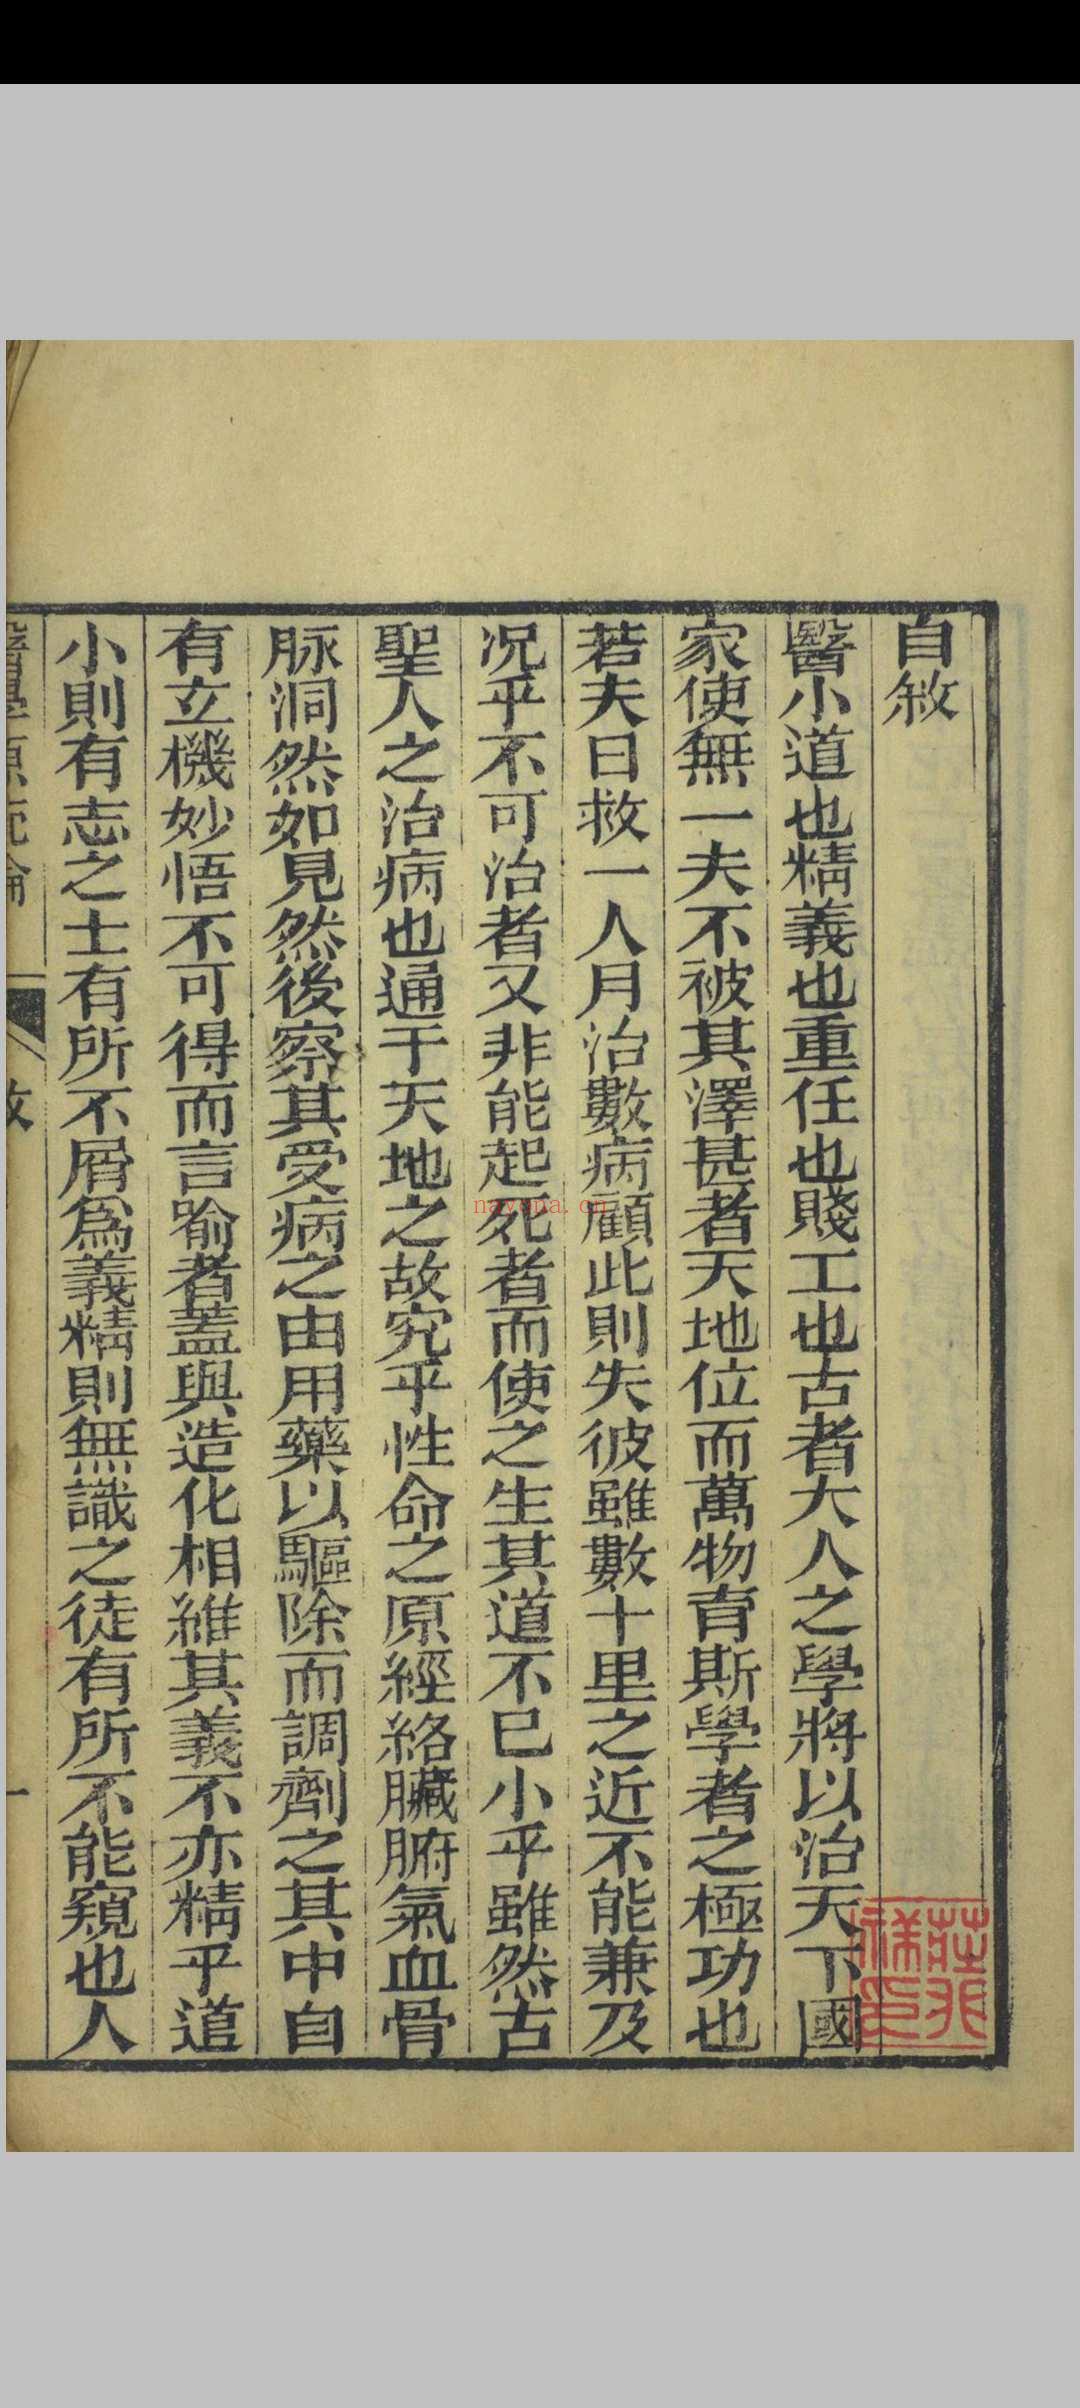 自敘
醫小道也精義也重任也賤工也古者大人之學將以治天下國
家使無一夫不被其澤甚者天地位而萬物育斯學者之極功也
若夫日救一人月治數病顧此則失彼雖數十里之近不能兼及
况乎不可治者又非能起死者而使之生其道不已小乎雖然古
聖人之治病也通于天地之故究乎性命之原經絡臟腑氣血骨
脉洞然如見然後察其受病之由用藥以驅除而調劑之其中自
有立機妙悟不可得而言喻者蓋與造化相維其義不亦精乎道
小則有志之士有所不屑爲義精則無識之徒有所不能窺也人
醫學原流論
敘
一
nayona.cn